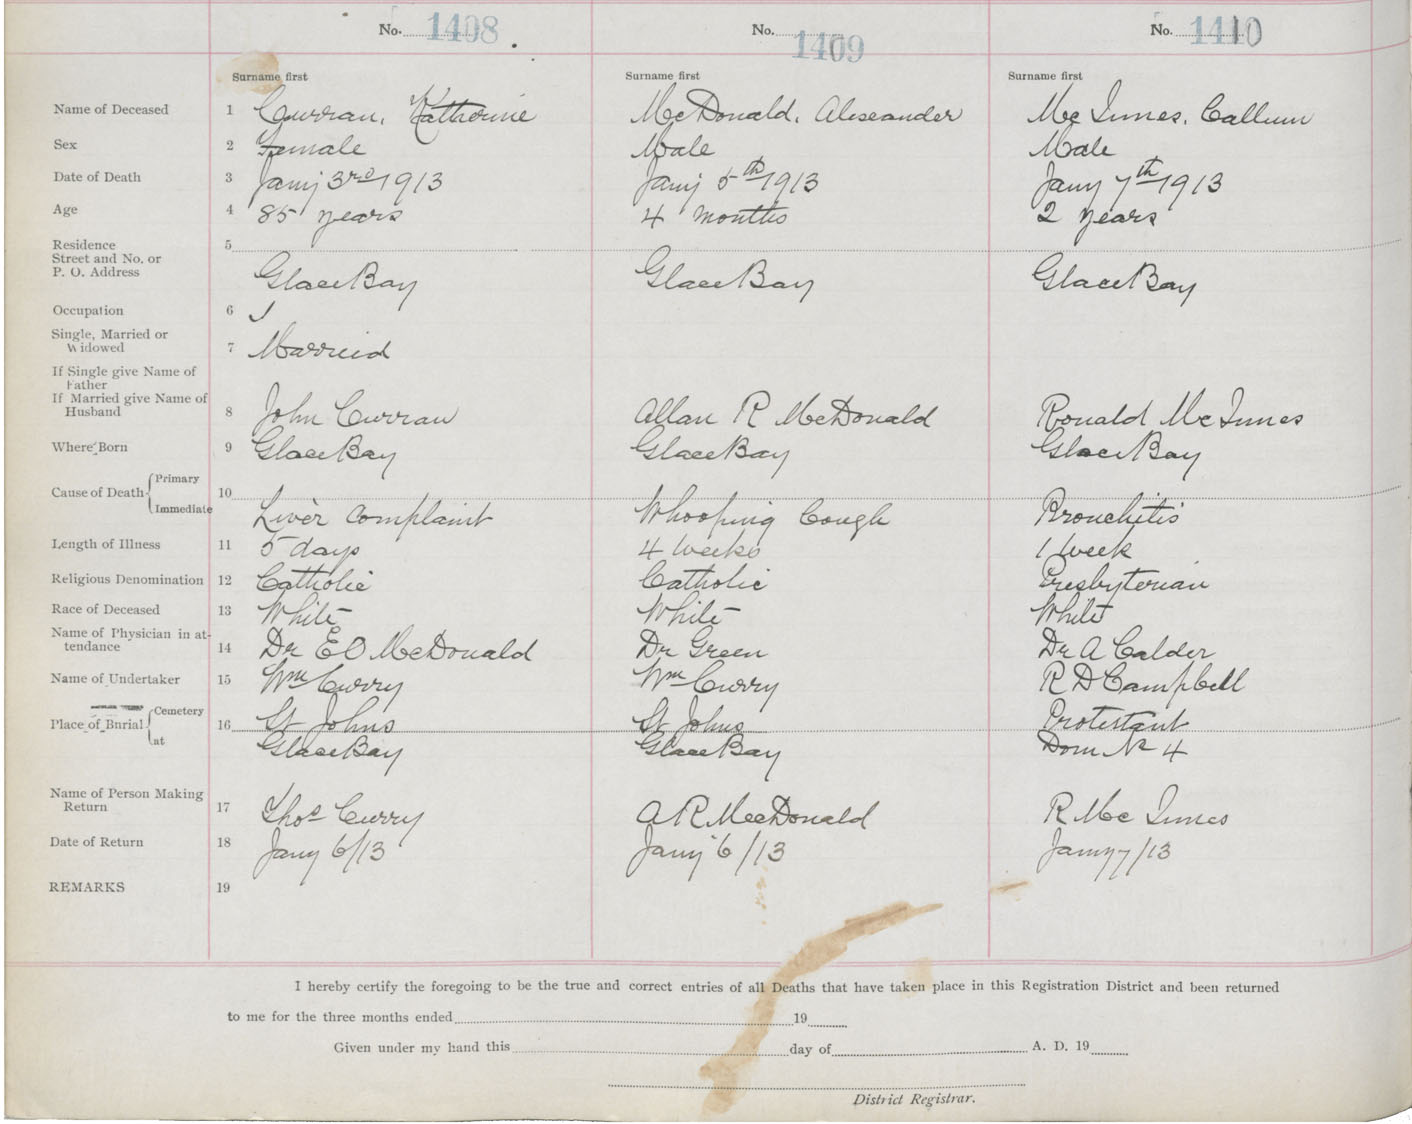 No. 1408 No. 1409 No. 1410
Surname first Surname first Surname first
Name of Deceased 1 Curran, Katherine McDonald, Alexander McInnes, Callum
Sex 2 Female Male Male
Date of Death 3 Jany 3rd 1913 Jany 5th 1913 Jany 7th 1913
Age 4 85 years 4 months 2 years
Residence 5
Street and No. or
P. O. Address Glace Bay Glace Bay Glace Bay
Occupation 6
Single, Married or
Widowed 7 Married
If Single give Name of
Father
If Married give Name of
Husband 8 John Curran Allan R McDonald Ronald McInnes
Where Born 9 Glace Bay Glace Bay Glace Bay
Primary
Cause of Death 10
Immediate Liver Complaint Whooping Cough Bronchitis
Length of Illness 11 5 days 4 weeks 1 week
Religious Denomination 12 Catholic Catholic Presbyterian
Race of Deceased 13 White White White
Name of Physician in at-
tendance 14 Dr E O McDonald Dr Green Dr A Calder
Name of Undertaker 15 Wm Curry Wm Curry R D Campbell
Cemetery
Place of Burial 16 St Johns St Johns Protestant
at Glace Bay Glace Bay Dom No 4
Name of Person Making
Return 17 Thos Curry A R McDonald R McInnes
Date of Return 18 Jany 6/13 Jany 6/13 Jany 7/13
REMARKS 19
I hereby certify the foregoing to be the true and correct entries of all Deaths that have taken place in this Registration District and been returned
to me for the three months ended 19
Given under my hand this day of A. D. 19
District Registrar.